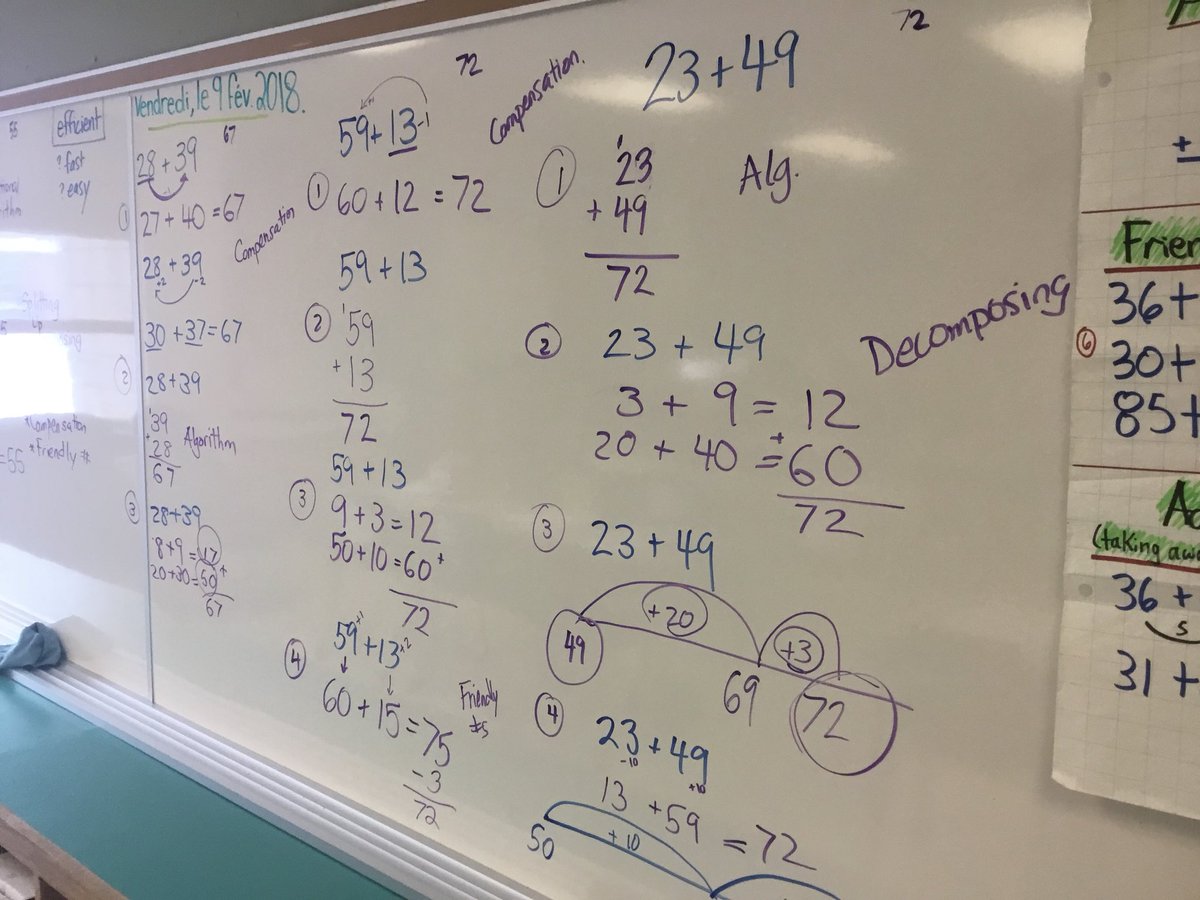 55
efficient
? fast
? easy
*Compensation
*Friendly #
=55
Vendredi, le 9 fév. 2018.
67
28 + 39
①
27 + 40 = 67
Compensation
28 + 39
+2 -2
30 + 37 = 67
②
28 + 39
1
39
+ 28
67
Algorithm
③
28 + 39
8 + 9 = 17
20 + 30 = 50 +
67
72
59 + 13 -1
+1
Compensation.
① 60 + 12 = 72
59 + 13
② 1
59
+ 13
72
59 + 13
③ 9 + 3 = 12
50 + 10 = 60 +
72
④ 59 + 13 +2
60 + 15 = 75
Friendly #s
- 3
72
72
23 + 49
① 1
23
+ 49
72
Alg.
② 23 + 49
Decomposing
3 + 9 = 12
+
20 + 40 = 60
72
③ 23 + 49
+20 +3
49 69 72
④ 23 + 49
-10 +10
13 + 59 = 72
50 +10
+
Frier
36 +
⑥ 30 +
85 +
(taking awa
36 +
5
31 +